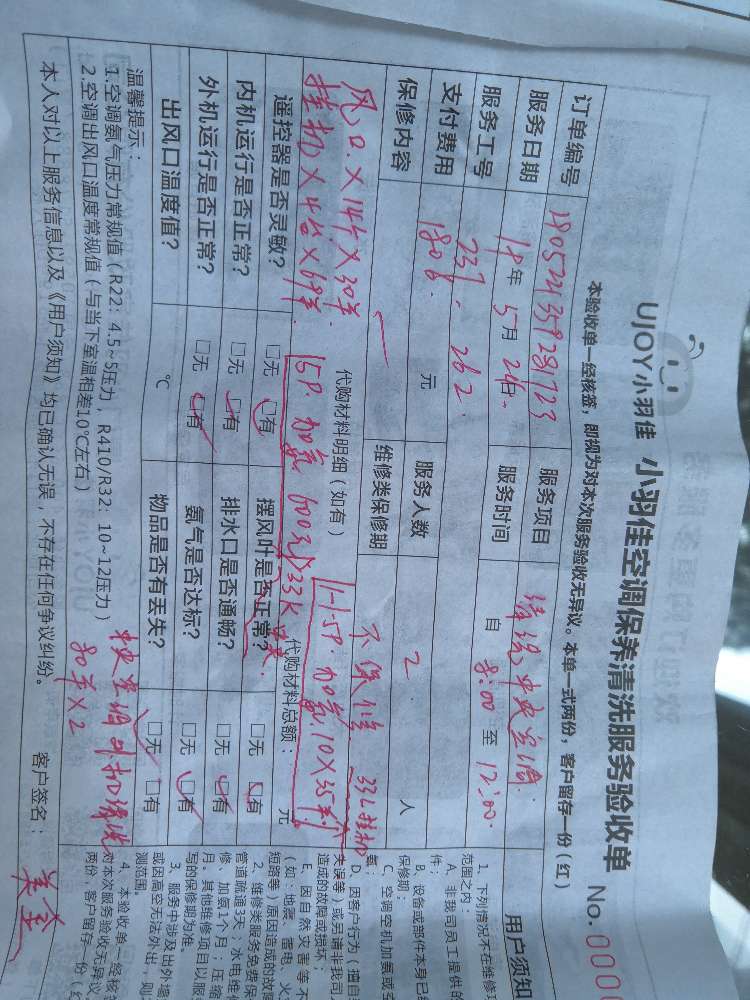 UJOY小羽佳 小羽佳空调保养清洗服务验收单 No.000
本验收单一经核签，即视为对本次服务验收无异议。本单一式两份，客户留存一份（红）
订单编号 服务项目 清洗中央空调
服务日期 18年5月24日 服务时间 自8:00至12:00
服务工号 237. 262 服务人数 2 人
支付费用 1808. 元 维修类保修期 不保修
保修内容
代购材料明细（如有） 代购材料总额： 元
风口×14个×30元
挂机×4台×69元
15P.加氟600元
1-1.5P.加氟10×35元
遥控器是否灵敏？ □无 □有 摆风叶是否正常？ □无 □有
内机运行是否正常？ □无 □有 排水口是否通畅？ □无 □有
外机运行是否正常？ □无 □有 氨气是否达标？ □无 □有
出风口温度值？ ℃ 物品是否有丢失？ □无 □有
温馨提示：
1.空调氨气压力常规值（R22：4.5~5压力，R410/R32：10~12压力）
2.空调出风口温度常规值（与当下室温相差10℃左右）
中央空调外机清洗
80元×2
本人对以上服务信息以及《用户须知》均已确认无误，不存在任何争议纠纷。 客户签名：
用户须知
1、下列情况不在维修
范围之内：
A、非我司员工提供的
件；
B、设备或部件本身已
保修期；
C、空调空机加氨或
氨；
D、因客户行为（擅自
失误等）或另请非我司
造成的故障或损坏；
E、因自然灾害等不
（如：地震、雷电、火
短路等）原因造成的故障
2、维修类服务免费保
管道疏通3天；水电维
修、加氨1个月；压缩
月。其他维修项目以服
写的保修期为准。
3、服务中涉及出外墙
或因高空无法外出，则
测范围。
4、本验收单一经核签
对本次服务验收无异议
两份，客户留存一份（红